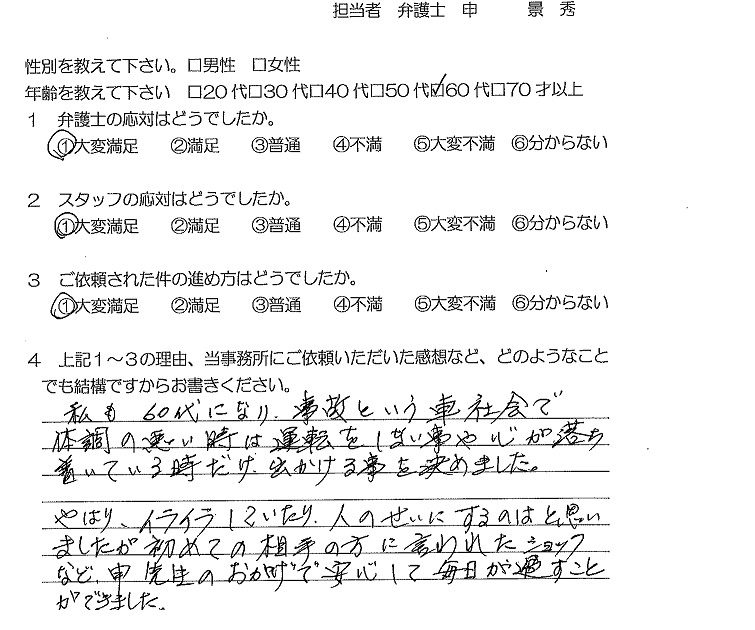 担当者 弁護士 申 景 秀
性別を教えて下さい。□男性 □女性
年齢を教えて下さい □20代□30代□40代□50代☑60代□70才以上
1 弁護士の応対はどうでしたか。
①大変満足 ②満足 ③普通 ④不満 ⑤大変不満 ⑥分からない
2 スタッフの応対はどうでしたか。
①大変満足 ②満足 ③普通 ④不満 ⑤大変不満 ⑥分からない
3 ご依頼された件の進め方はどうでしたか。
①大変満足 ②満足 ③普通 ④不満 ⑤大変不満 ⑥分からない
4 上記1〜3の理由、当事務所にご依頼いただいた感想など、どのようなこと
でも結構ですからお書きください。
私も60代になり、事故という車社会で
体調の悪い時は運転をしない事や心が落ち
着いている時だけ、出かける事を決めました。
やはり、イライラしていたり、人のせいにするのはと思い
ましたが初めての相手の方に言われたショック
など、申先生のおかげで安心して毎日が過すこと
ができました。